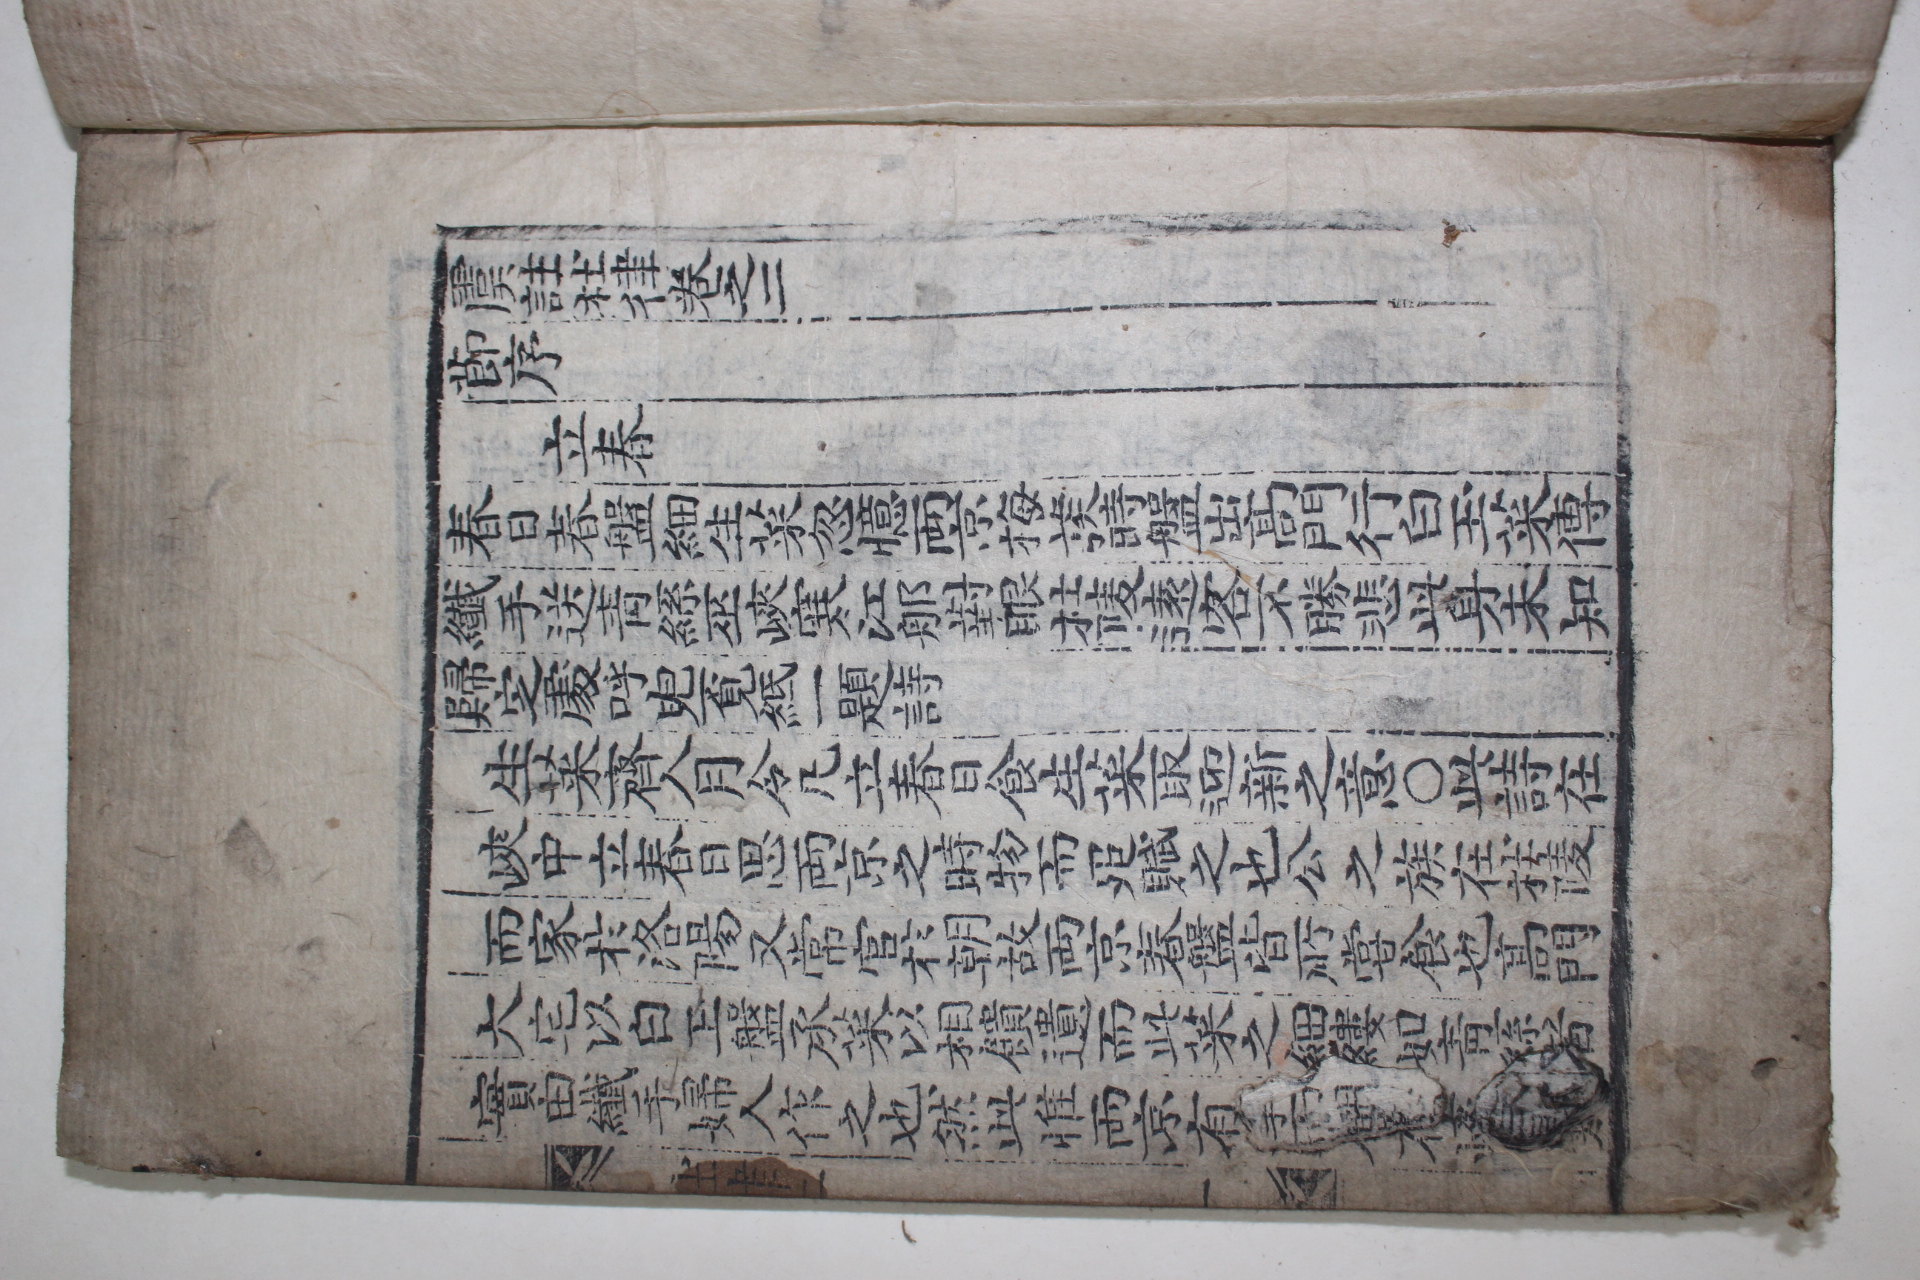 虞註杜律卷之二
節序
立春
春日春盤細生菜忽憶兩京梅發時盤出高門行白玉菜傳
纖手送青絲巫峽寒江那對眼杜陵遠客不勝悲此身未知
歸定處呼兒覓紙一題詩
生菜齊人月令凡立春日食生菜取迎新之意○此詩在
峽中立春日思兩京之時物而追賦之也公之族在杜陵
而家於洛陽又常官於朝故兩京春盤皆所嘗食也高門
大宅以白玉盤承菜以相饋遺而此菜之細縷如青絲者
實由纖手婦人作之也然此惟兩京有
杜律 二 一